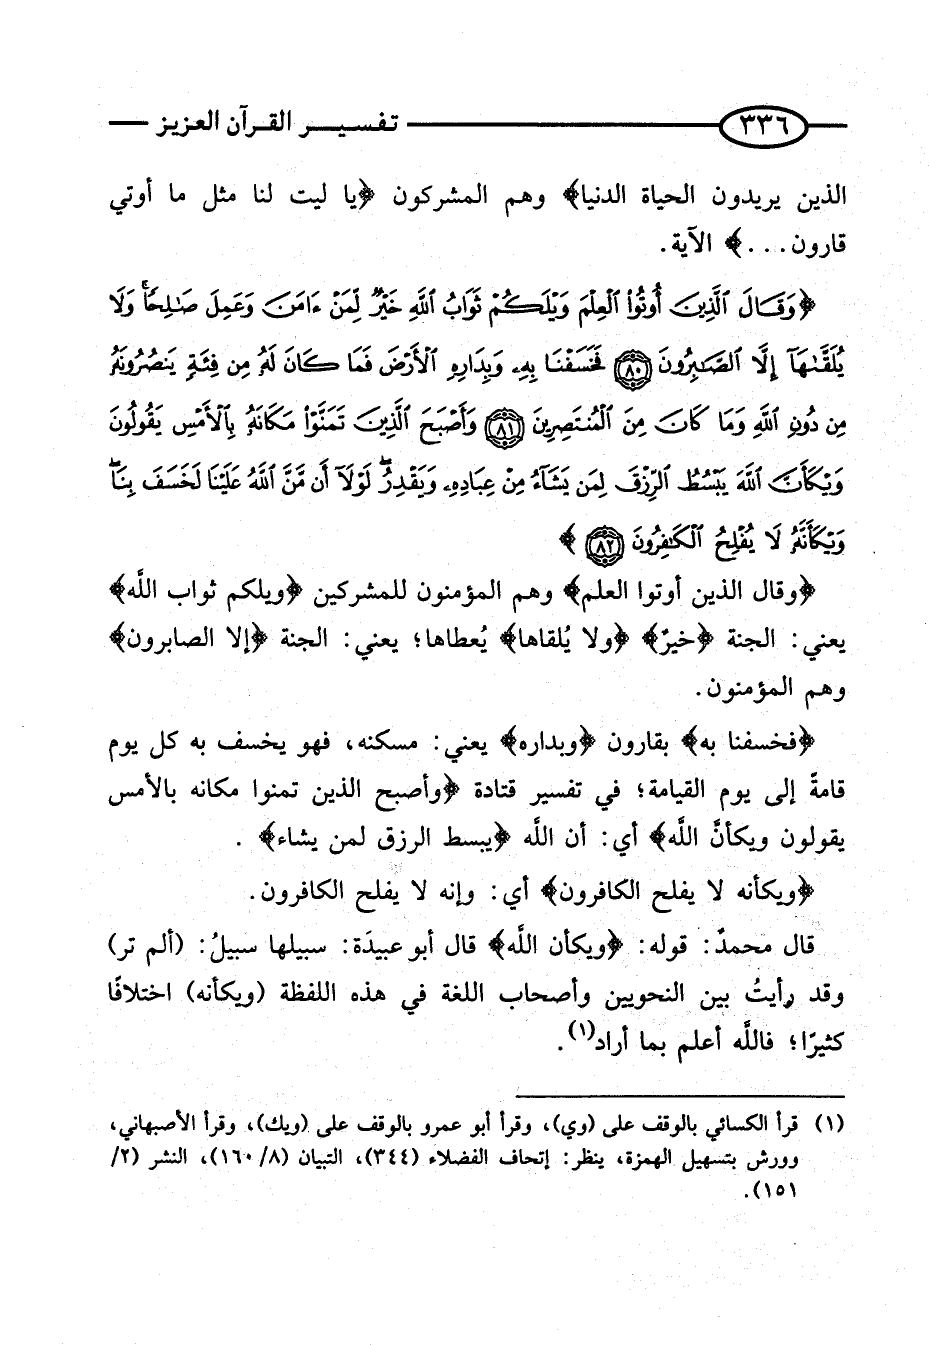 ٣٣٦ تفسير القرآن العزيز
الذين يريدون الحياة الدنيا﴾ وهم المشركون ﴿يا ليت لنا مثل ما أوتي
قارون...﴾ الآية.
﴿وَقَالَ ٱلَّذِينَ أُوتُوا۟ ٱلْعِلْمَ وَيْلَكُمْ ثَوَابُ ٱللَّهِ خَيْرٌ لِّمَنْ ءَامَنَ وَعَمِلَ صَٰلِحًا ۚ وَلَا
يُلَقَّىٰهَآ إِلَّا ٱلصَّٰبِرُونَ ٨٠ فَخَسَفْنَا بِهِۦ وَبِدَارِهِ ٱلْأَرْضَ فَمَا كَانَ لَهُۥ مِن فِئَةٍ يَنصُرُونَهُۥ
مِن دُونِ ٱللَّهِ وَمَا كَانَ مِنَ ٱلْمُنتَصِرِينَ ٨١ وَأَصْبَحَ ٱلَّذِينَ تَمَنَّوْا۟ مَكَانَهُۥ بِٱلْأَمْسِ يَقُولُونَ
وَيْكَأَنَّ ٱللَّهَ يَبْسُطُ ٱلرِّزْقَ لِمَن يَشَآءُ مِنْ عِبَادِهِۦ وَيَقْدِرُ ۖ لَوْلَآ أَن مَّنَّ ٱللَّهُ عَلَيْنَا لَخَسَفَ بِنَا ۖ
وَيْكَأَنَّهُۥ لَا يُفْلِحُ ٱلْكَٰفِرُونَ ٨٢﴾
﴿وقال الذين أوتوا العلم﴾ وهم المؤمنون للمشركين ﴿ويلكم ثواب اللَّه﴾
يعني: الجنة ﴿خيرٌ﴾ ﴿ولا يُلقاها﴾ يُعطاها؛ يعني: الجنة ﴿إلا الصابرون﴾
وهم المؤمنون.
﴿فخسفنا به﴾ بقارون ﴿وبداره﴾ يعني: مسكنه، فهو يخسف به كل يوم
قامةً إلى يوم القيامة؛ في تفسير قتادة ﴿وأصبح الذين تمنوا مكانه بالأمس
يقولون ويكأنَّ اللَّه﴾ أي: أن اللَّه ﴿يبسط الرزق لمن يشاء﴾.
﴿ويكأنه لا يفلح الكافرون﴾ أي: وإنه لا يفلح الكافرون.
قال محمدٌ: قوله: ﴿ويكأن اللَّه﴾ قال أبو عبيدَة: سبيلها سبيلُ: (ألم تر)
وقد رأيتُ بين النحويين وأصحاب اللغة في هذه اللفظة (ويكأنه) اختلافًا
كثيرًا؛ فاللَّه أعلم بما أراد(١).
(١) قرأ الكسائي بالوقف على (وي)، وقرأ أبو عمرو بالوقف على (ويك)، وقرأ الأصبهاني،
وورش بتسهيل الهمزة، ينظر: إتحاف الفضلاء (٣٤٤)، التبيان (٨/ ١٦٠)، النشر (٢/
١٥١).